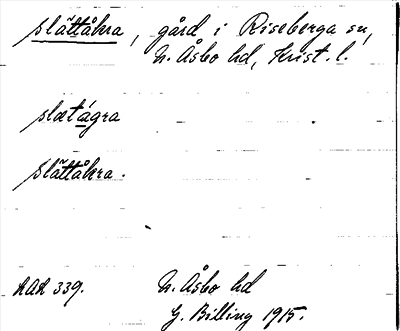 Slättåkra, gård i Riseberga sn,
N. Åsbo hd, Krist. l.
slætágra
Slättåkra.
RAÄ 339. N. Åsbo hd
G. Billing 1915.